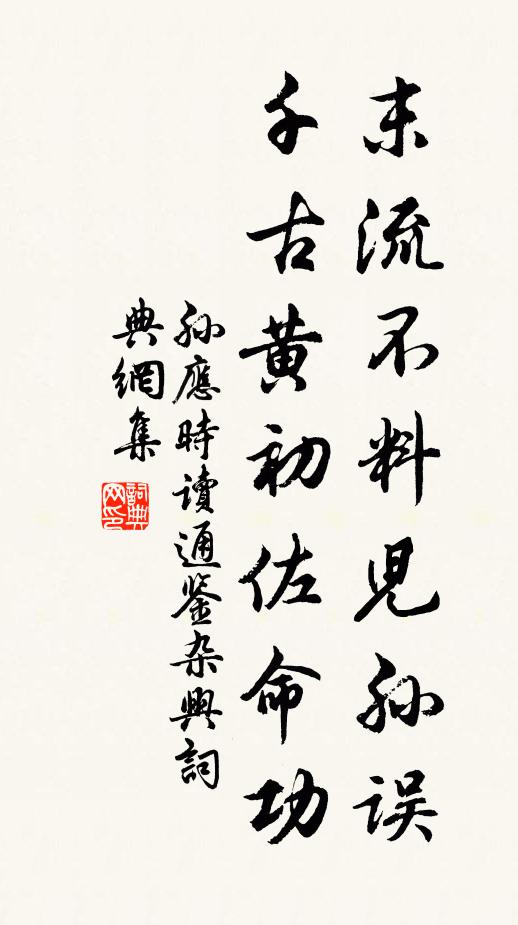 末流不料児孙误
千古黄初佐命功
孙應時讀通鉴杂興詞
典網集
詞典
网印